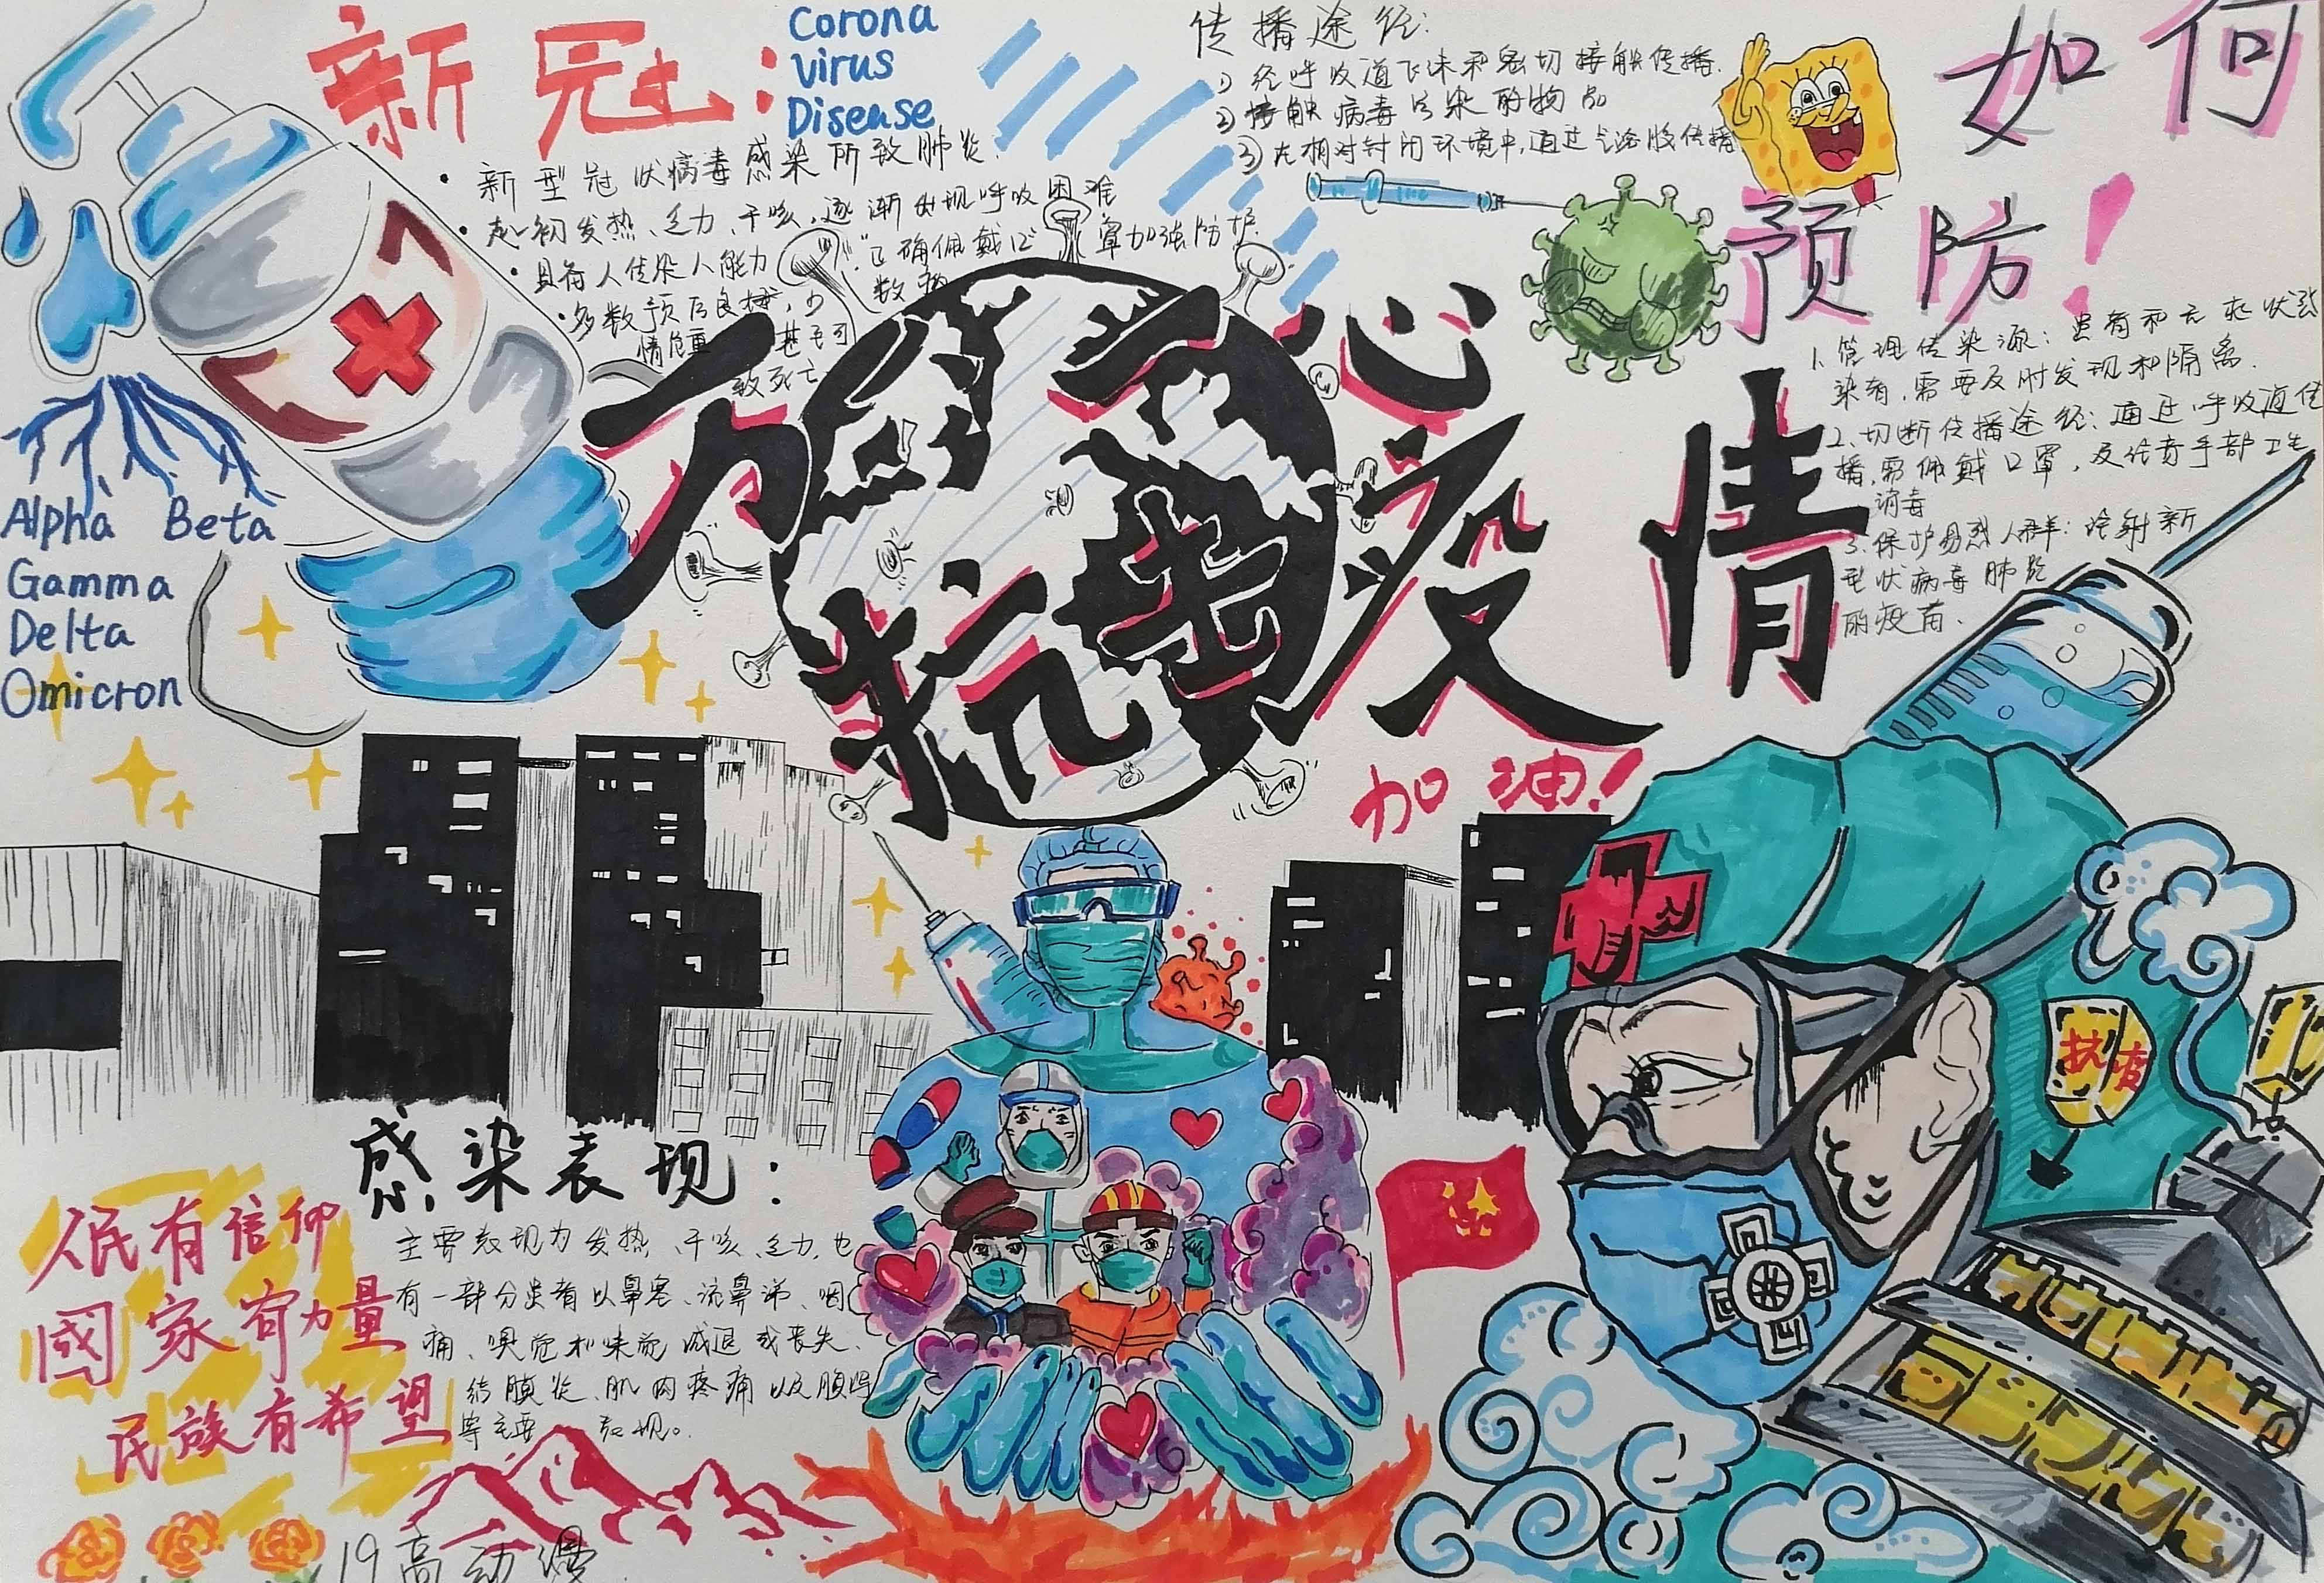 新冠:
Corona
virus
Disease
·新型冠状病毒感染所致肺炎.
·起初发热、乏力、干咳,逐渐出现呼吸困难
·具有人传染人能力
·多数预后良好,少数病
情危重 甚至可
致死亡
"正确佩戴口罩加强防护
传播途径:
1)经呼吸道飞沫和密切接触传播.
2)接触病毒污染的物品
3)在相对封闭环境中,通过气溶胶传播
如何
预防!
1.管理传染源:患者和无症状感
染者,需要及时发现和隔离.
2.切断传播途径:通过呼吸道传
播,需佩戴口罩,及
手部卫生
消毒
3.保护易烈人群:
射新
型状病毒肺炎
的疫苗.
Alpha Beta
Gamma
Delta
Omicron
万众一心
抗击疫情
加油!
抗疫
感染表现:
主要表现为发热、干咳、乏力,也
有一部分患者以鼻塞、流鼻涕、咽
痛、嗅觉和味觉减退或丧失、
结膜炎、肌肉疼痛以及腹泻
等主要 表现。
人民有信仰
國家有力量
民族有希望
19高动漫